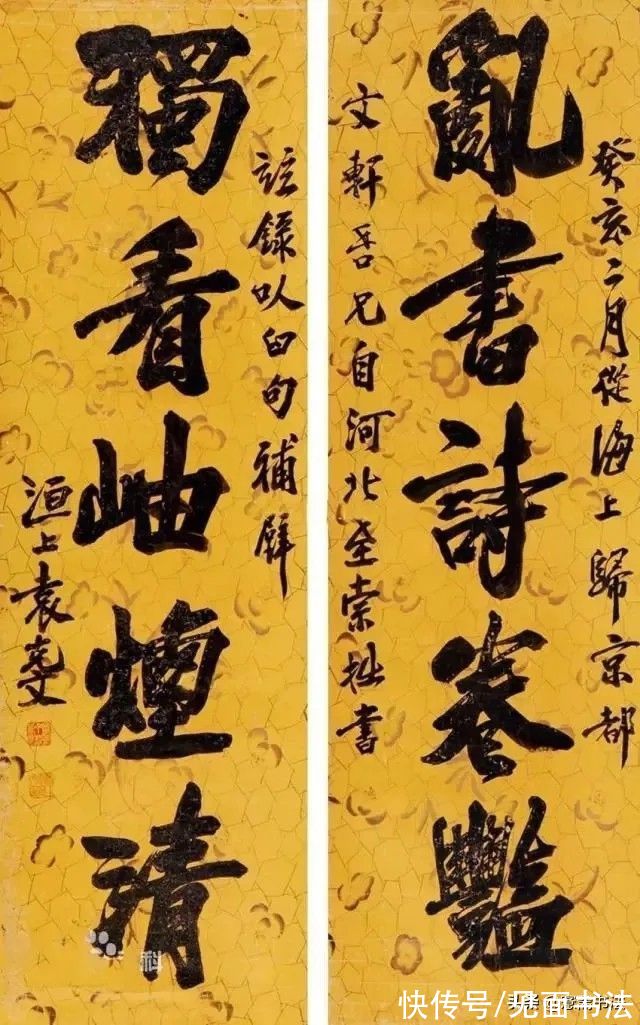 癸亥二月從海上歸京都
亂書詩卷豔
文軒吾兄自河北至索拙書
錄以臼句補壁
獨看岫煙清
洹上袁克文
科
快传号/见面书法